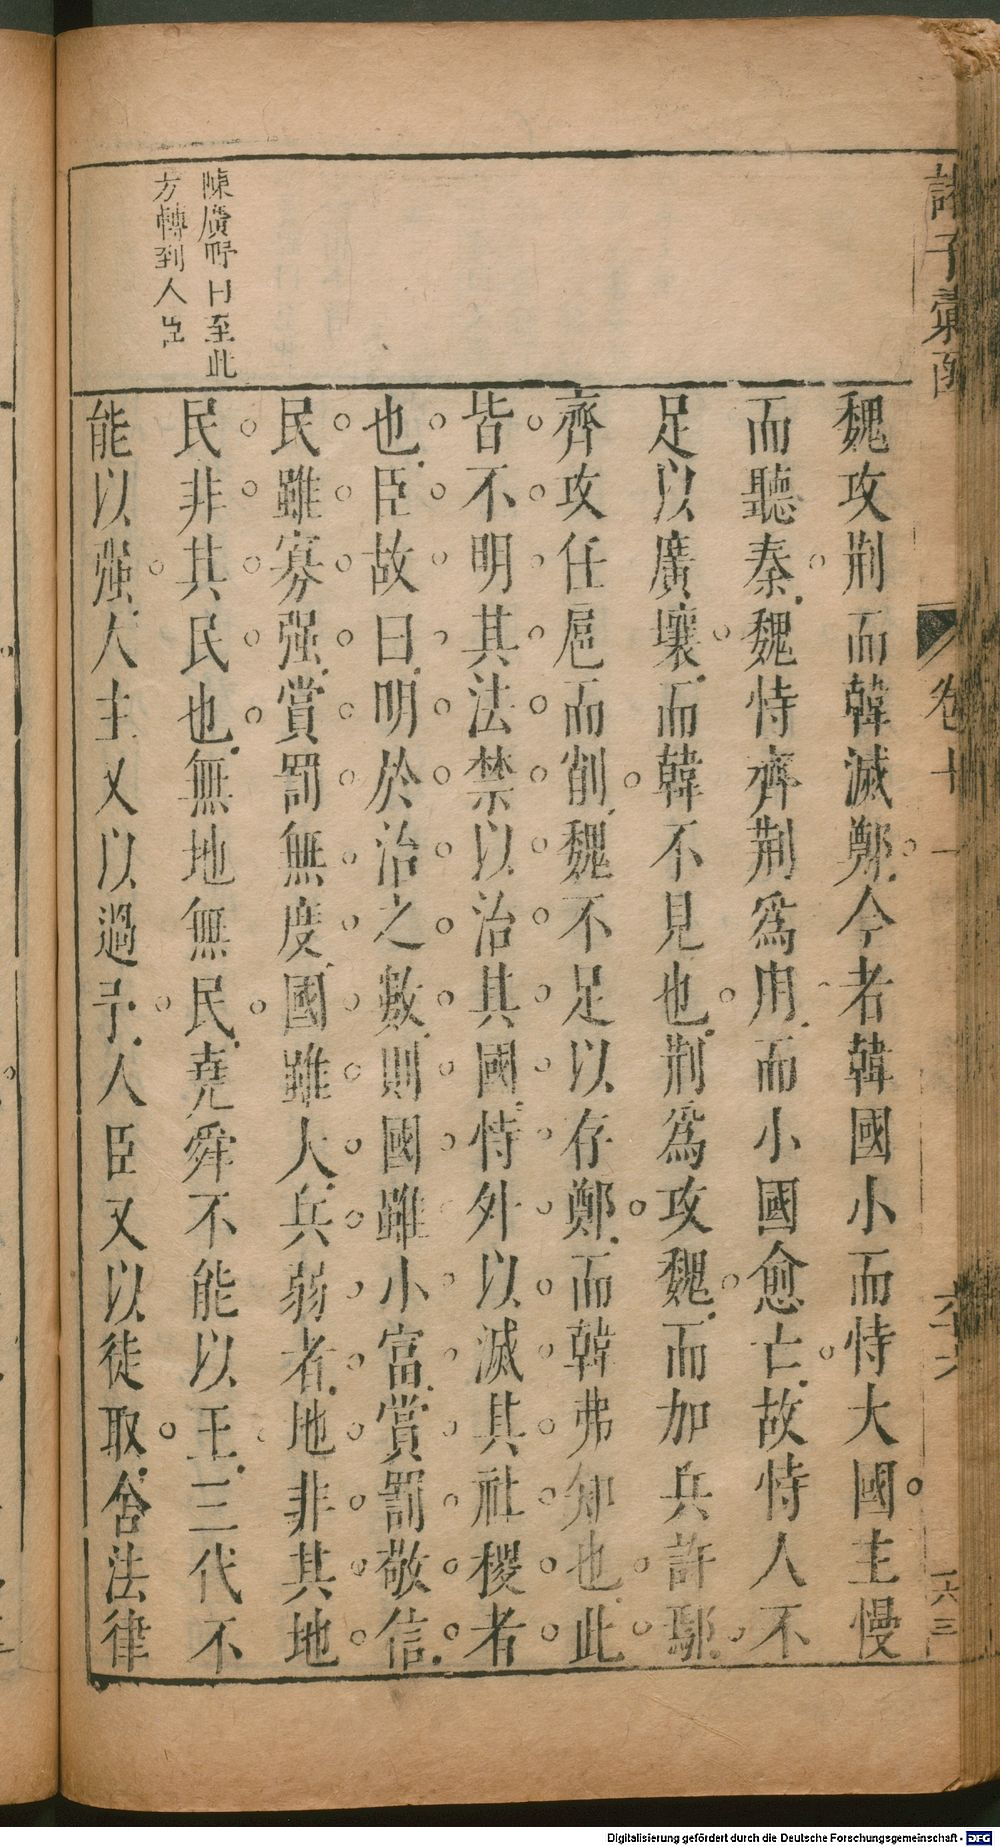 諸子彙函
卷十一
六十六
六三
魏攻荆而韓滅鄭今者韓國小而恃大國主慢
而聽秦魏恃齊荆爲用而小國愈亡故恃人不
足以廣壤而韓不見也荆爲攻魏而加兵許鄢
齊攻任扈而削魏不足以存鄭而韓弗知也此
皆不明其法禁以治其國恃外以滅其社稷者
也臣故曰明於治之數則國雖小富賞罰敬信
民雖寡强賞罰無度國雖大兵弱者地非其地
民非其民也無地無民堯舜不能以王三代不
能以强人主又以過予人臣又以徒取舍法律
陳廣野曰至此
方轉到人
Digitalisierung gefördert durch die Deutsche Forschungsgemeinschaft - DFG